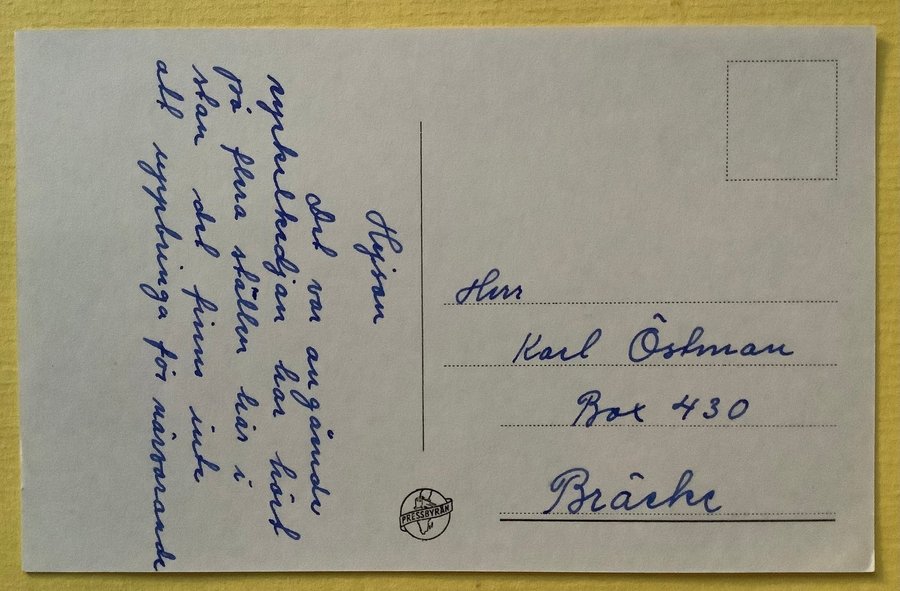 Hejsan
Det var angående
nyckelkedjan har hört
på flera ställen här i
stan det finns inte
att uppbringa för närvarande
Herr
Karl Östman
Box 430
Bräcke
PRESSBYRÅN